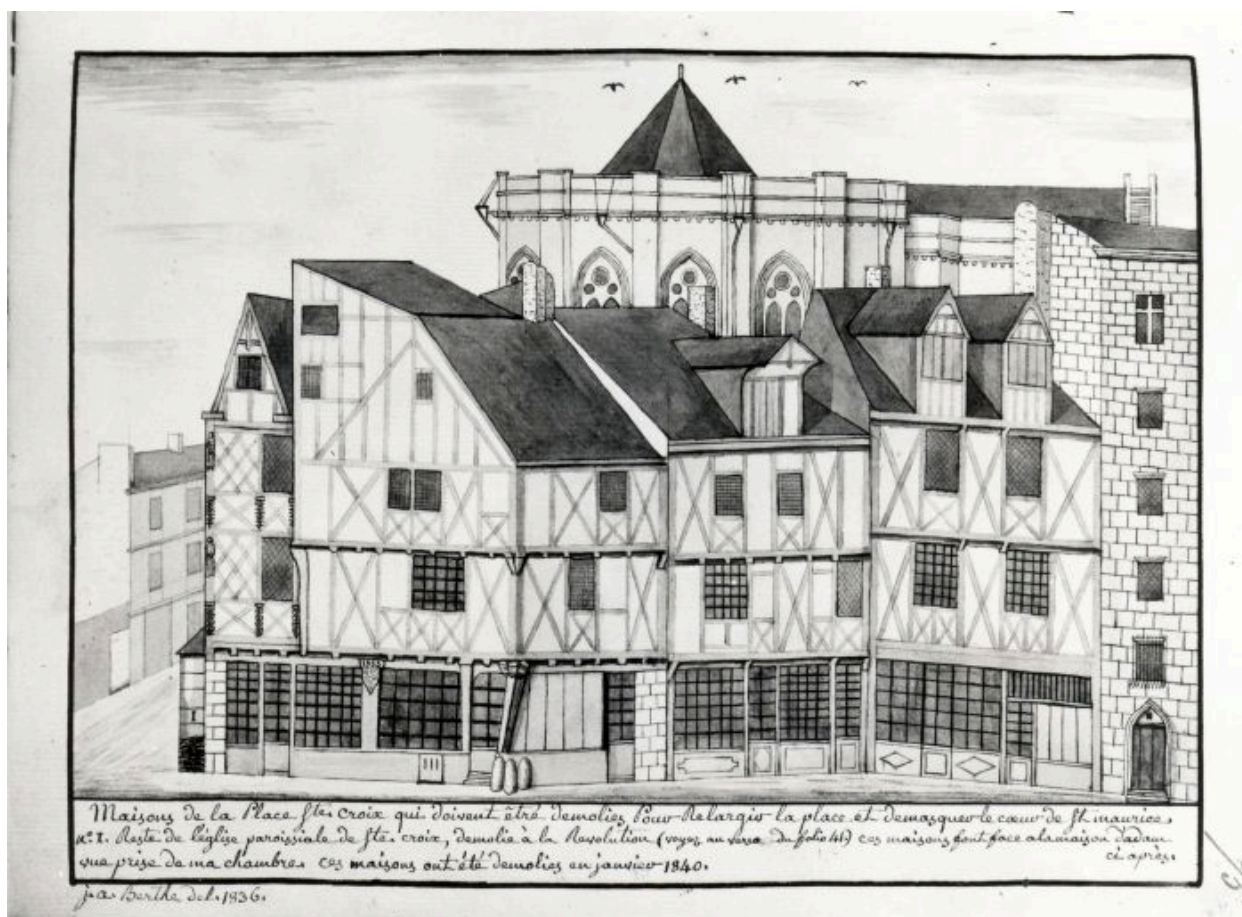 1553
I
Maisons de la Place Ste. Croix qui doivent être demolies Pour Relargir la place et demasquer le cœur de St. maurice.
N°. I. Reste de l'église paroissiale de Ste. croix, demolie à la Revolution (voyez au verso du folio 46) ces maisons font face a la maison d'adam
vue prise de ma chambre. ces maisons ont été demolies en janvier 1840.
ci après.
j. a. Berthe del. 1836.